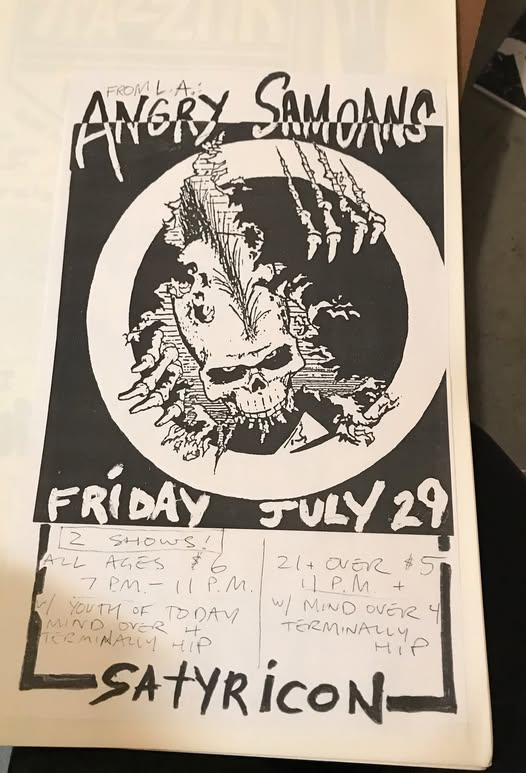 FROM L.A.:
ANGRY SAMOANS
FRIDAY JULY 29
2 SHOWS!
ALL AGES $6
7 P.M. - 11 P.M.
W/ YOUTH OF TODAY
MIND OVER 4
TERMINALLY HIP
21 + OVER $5
11 P.M. +
W/ MIND OVER 4
TERMINALLY
HIP
SATYRICON